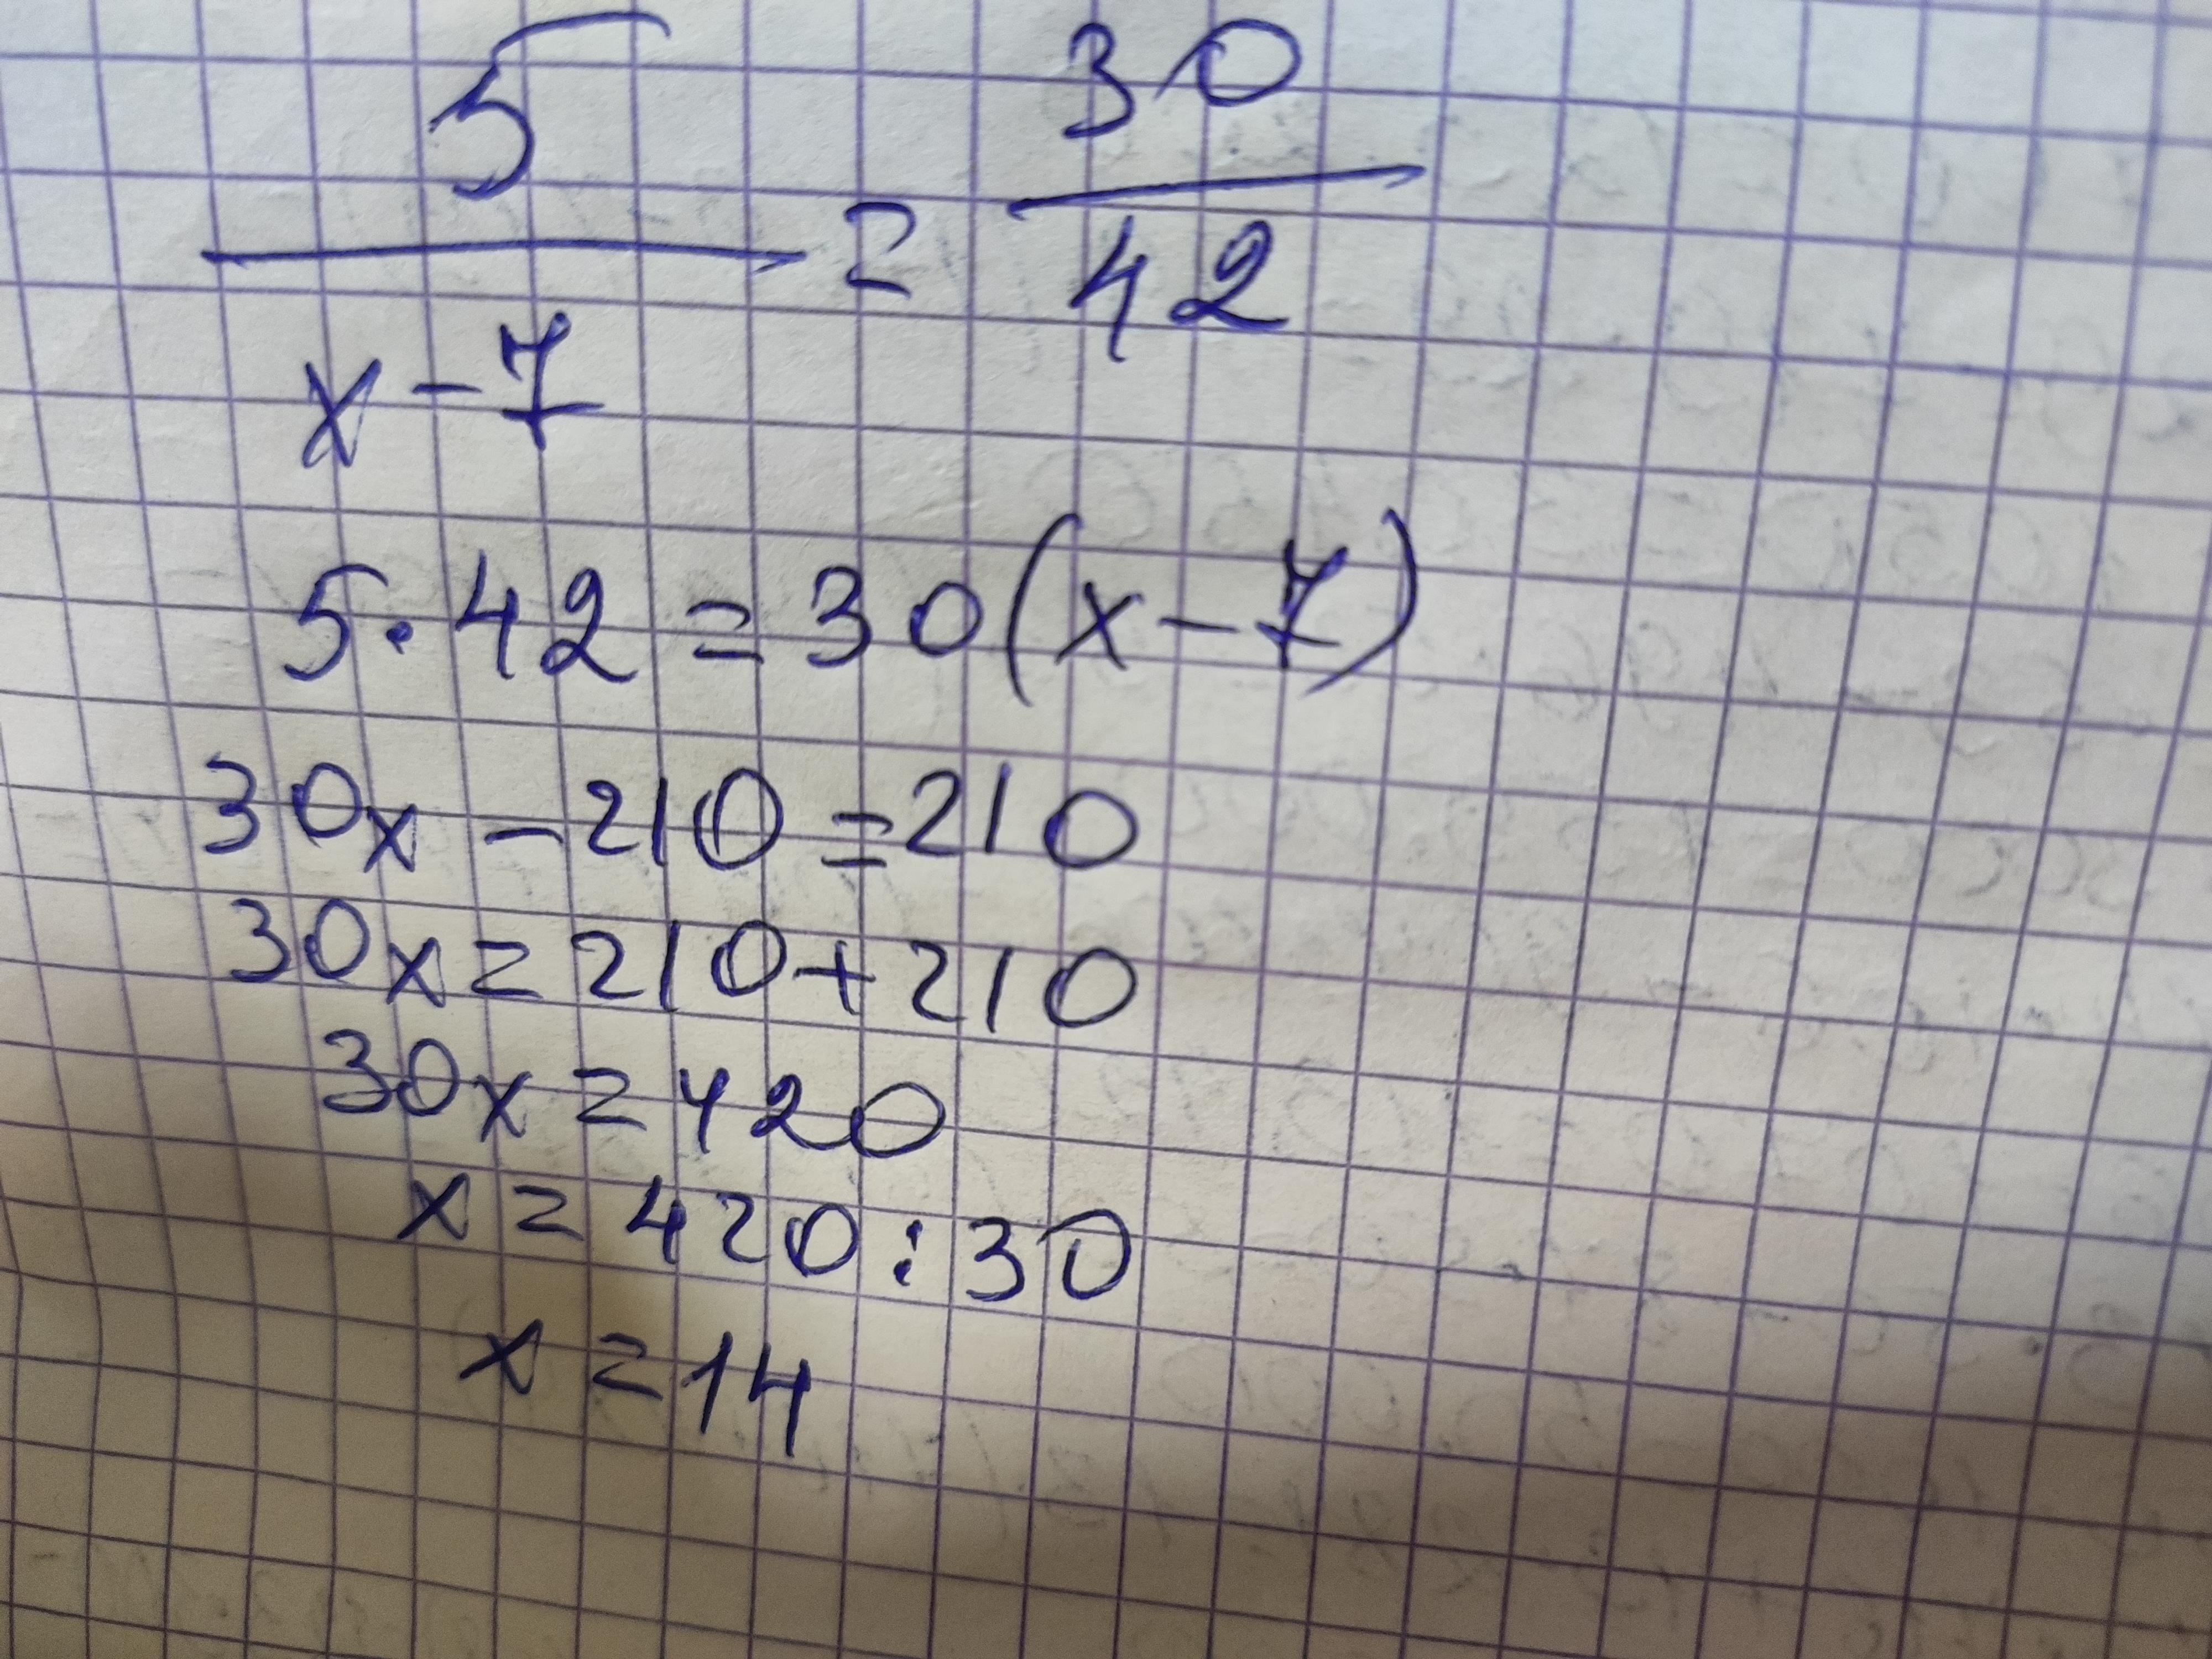 5/(x-7) = 30/42
5·42=30(x-7)
30x-210=210
30x=210+210
30x=420
x=420:30
x=14